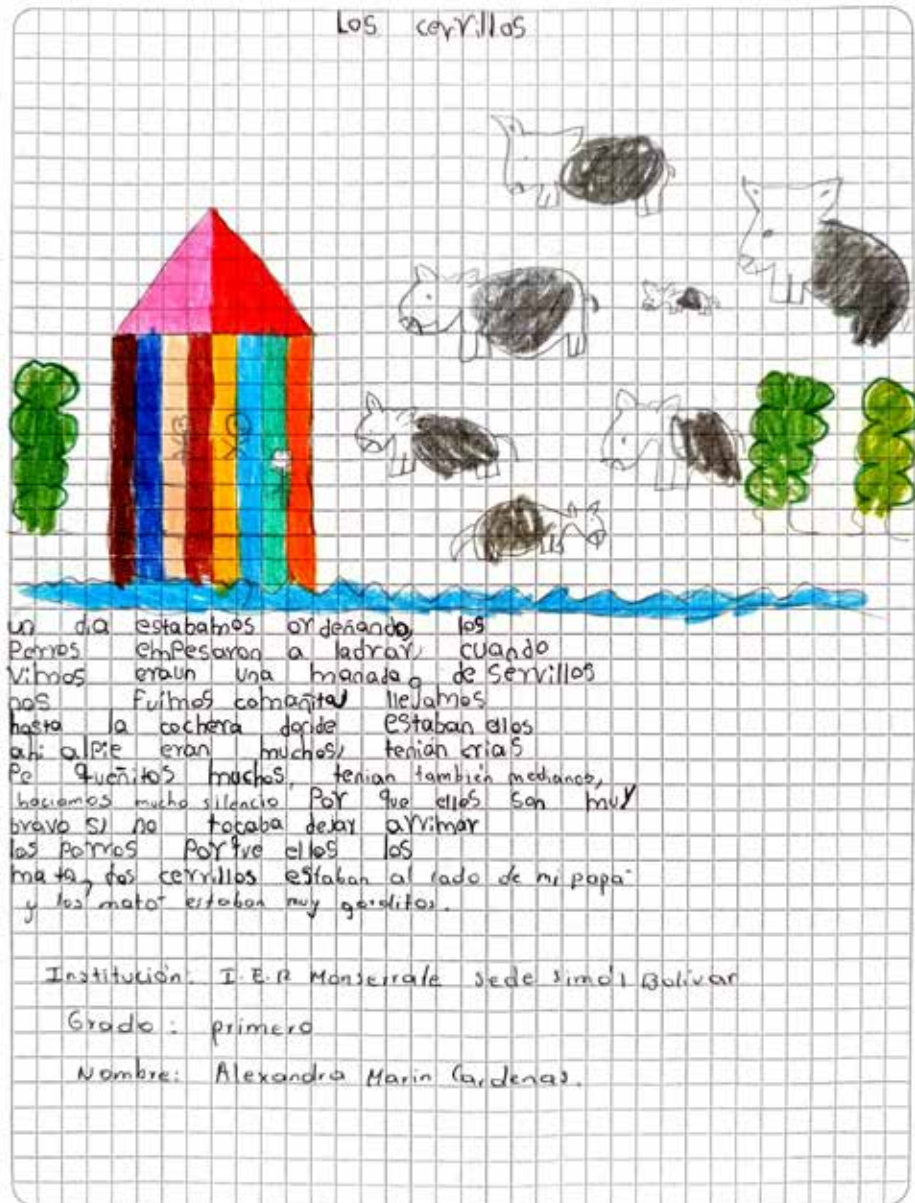 Los cerrillos
un día estabamos ordeñando, los
Perros empesaron a ladrar, cuando
vimos eraun una manada, de servillos
nos fuimos comañita llegamos
hasta la cochera donde estaban ellos
ahi alpie eran muchos, tenian crias
Pe queñitos muchos, tenian también medianos,
haciamos mucho silencio Por que ellos son muy
bravo si no tocaba dejar arrimar
los Perros Porque ellos los
mata, dos cerrillos estaban al lado de mi papá
y los mató estaban muy gorditos.
Institución: I.E.R Monserrate sede simól Bolivar
Grado: primero
Nombre: Alexandra Marin Cardenas.